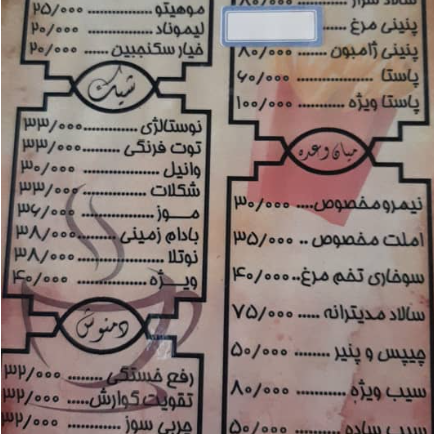 سالاد سزار ۸۰/۰۰۰
پنینی مرغ ......
پنینی ژامبون ........ ۸۰/۰۰۰
پاستا ........... ۶۰/۰۰۰
پاستا ویژه ......... ۱۰۰/۰۰۰
میان وعده
نیمرو مخصوص.... ۳۰/۰۰۰
املت مخصوص .. ۳۵/۰۰۰
سوخاری تخم مرغ.. ۴۰/۰۰۰
سالاد مدیترانه ..... ۷۵/۰۰۰
چیپس و پنیر ...... ۵۰/۰۰۰
سیب ویژه ......... ۸۰/۰۰۰
سیب ساده ........ ۵۰/۰۰۰
موهیتو ............ ۲۵/۰۰۰
لیموناد ............ ۲۰/۰۰۰
خیار سکنجبین .... ۲۰/۰۰۰
شیک
نوستالژی ........... ۳۳/۰۰۰
توت فرنگی ........ ۳۳/۰۰۰
وانیل ............... ۳۰/۰۰۰
شکلات ............ ۳۳/۰۰۰
موز ................ ۳۶/۰۰۰
بادام زمینی ........ ۳۸/۰۰۰
نوتلا ............... ۳۸/۰۰۰
ویژه ............... ۴۰/۰۰۰
دمنوش
رفع خستگی ....... ۳۲/۰۰۰
تقویت گوارش..... ۳۲/۰۰۰
چربی سوز ........ ۳۲/۰۰۰